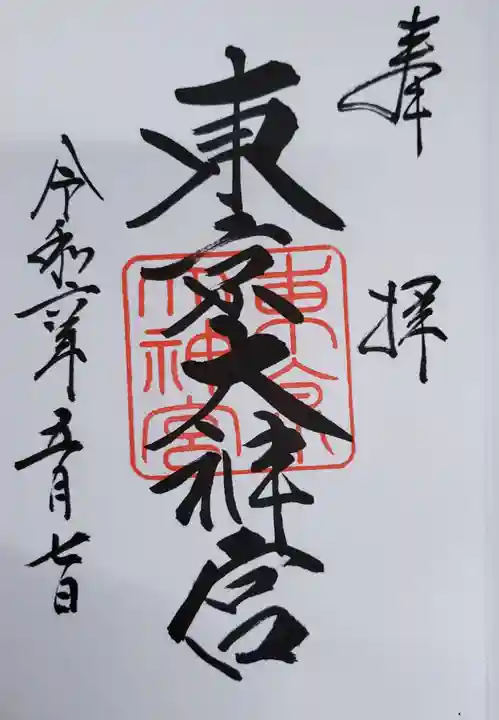 奉拝
東京大神宮
東京大神宮
令和六年五月七日